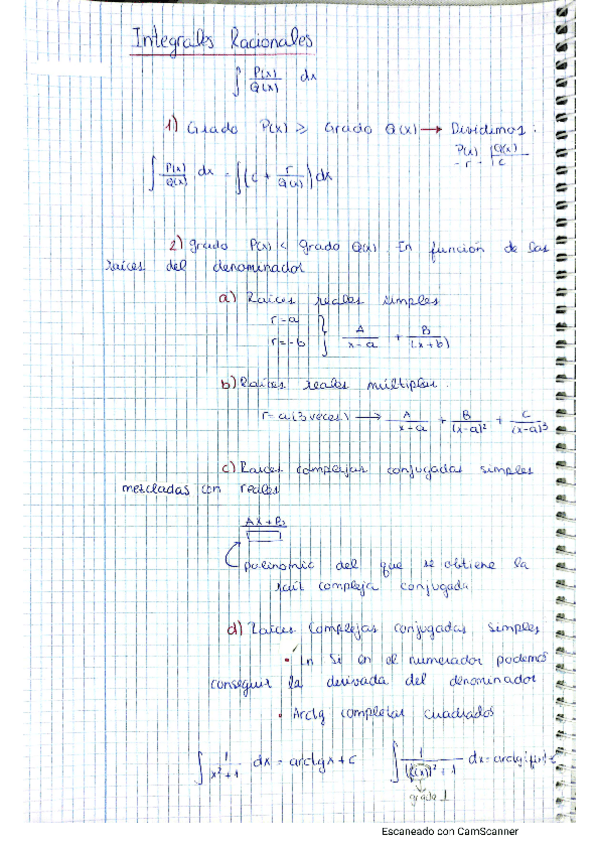 Integrales Racionales
∫ P(x)/Q(x) dx
1) Grado P(x) ≥ Grado Q(x) → Dividimos:
P(x) |Q(x)
- r - | C
∫ P(x)/Q(x) dx = ∫(C + r/Q(x)) dx
2) grado P(x) < grado Q(x). En función de las
raíces del denominador
a) Raíces reales simples
r=a
r=-b } A/(x-a) + B/(x+b)
b) Raíces reales múltiples.
r=a (3 veces) → A/(x-a) + B/(x-a)² + C/(x-a)³
c) Raíces complejas conjugadas simples
mezcladas con reales
Ax+B
polinomio del que se obtiene la
raíz compleja conjugada
d) Raíces complejas conjugadas simples
• Ln si en el numerador podemos
conseguir la derivada del denominador
• Arctg completar cuadrados
∫ 1/(x²+1) dx = arctgx + c ∫ 1/((f(x))²+1) dx = arctg
grado 1
Escaneado con CamScanner